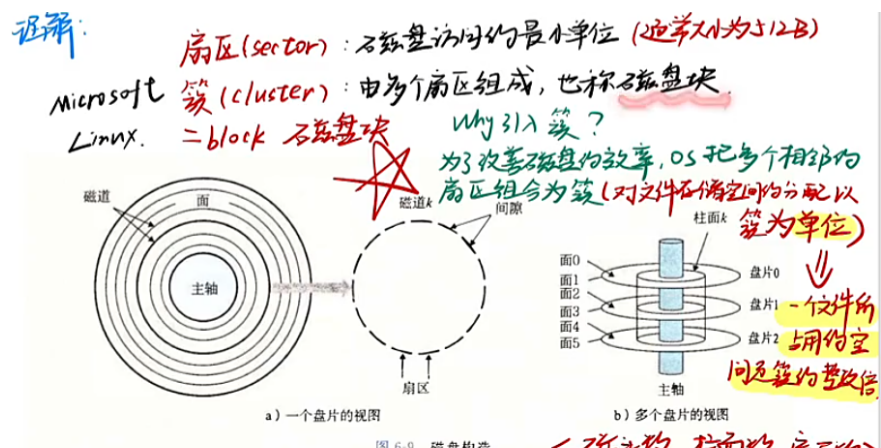 误解:
扇区(sector): 磁盘访问的最小单位 (通常大小为512B)
Microsoft 簇(cluster): 由多个扇区组成, 也称磁盘块
Linux. =block 磁盘块
Why引入簇?
为了改善磁盘的效率, OS把多个相邻的
扇区组合为簇 (对文件存储空间的分配以
簇为单位)
⇓
一个文件所
占用的空
间是簇的整数倍
磁道
面
主轴
磁道k
间隙
扇区
a) 一个盘片的视图
柱面k
面0
面1
面2
面3
面4
面5
盘片0
盘片1
盘片2
主轴
b) 多个盘片的视图
图 6-9 磁盘构造